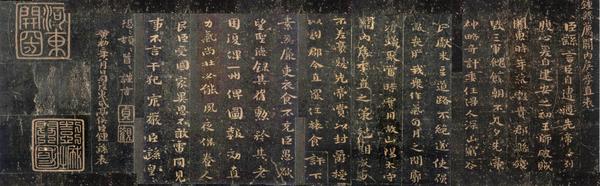 臣繇言臣自遭遇先帝忝列
腹心爰自建安之初王師破賊
關東時年荒穀貴郡縣殘
毀三軍餽饟朝不及夕先帝
神略奇計委任得人深山窮谷
民獻米豆道路不絕遂使強
敵喪膽我眾作氣旬月之間廓
清蟻聚當時實用故山陽太守
關內侯季直之策剋期成事
不差豪髮先帝賞以封爵授
以劇郡今直罷任旅食許下
素為廉吏衣食不充臣愚欲
望聖德錄其舊勳矜其老
困復俾一州俾圖報效直
力氣尚壯必能夙夜保養人
民臣受國家異恩不敢雷同見
事不言干犯宸嚴臣繇皇
恐皇恐頓首頓首謹言
貞觀
黃初二年八月日司徒東武亭侯臣鍾繇表